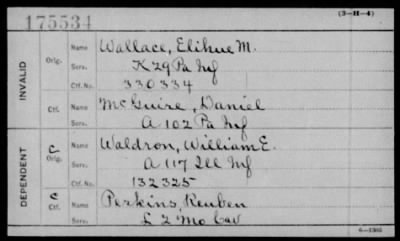 (3-H-4)
175534
INVALID
Orig.
Name Wallace, Elihue M.
Serv. K 29 Pa Inf
Ctf. No. 330334
Ctf.
Name McGuire, Daniel
Serv. A 102 Pa Inf
DEPENDENT
C
Orig.
Name Waldron, William E.
Serv. A 117 Ill Inf
Ctf. No. 132325
C
Ctf.
Name Perkins, Reuben
Serv. L 2 Mo Cav